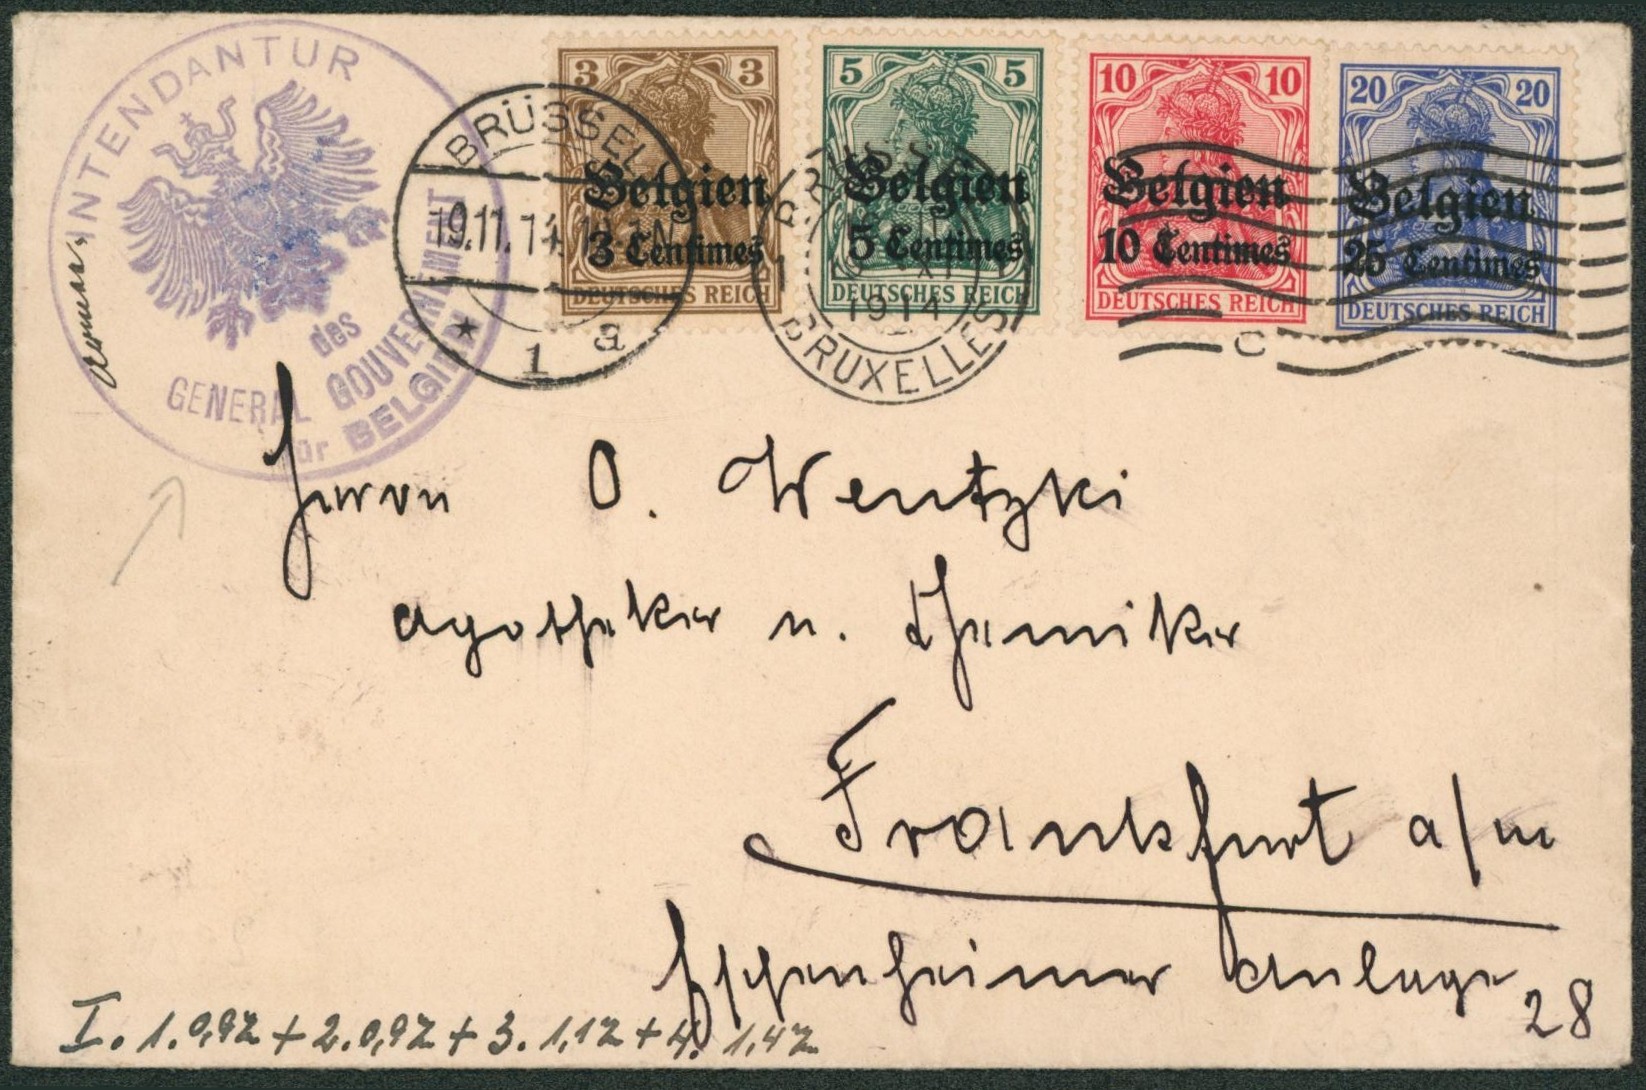 INTENDANTUR
des
GENERAL GOUVERNEMENT
für BELGIEN
BRÜSSEL
19.11.14.
★ 1 a
1914
BRUXELLES
C
3 3
Belgien
3 Centimes
DEUTSCHES REICH
5 5
Belgien
5 Centimes
DEUTSCHES REICH
10 10
Belgien
10 Centimes
DEUTSCHES REICH
20 20
Belgien
25 Centimes
DEUTSCHES REICH
Herrn O. Wentzki
Apotheker u. Chemiker
Frankfurt a/m
Eschenheimer Anlage 28
I. 1. 0,92 + 2. 0,92 + 3. 1,12 + 4. 1,42